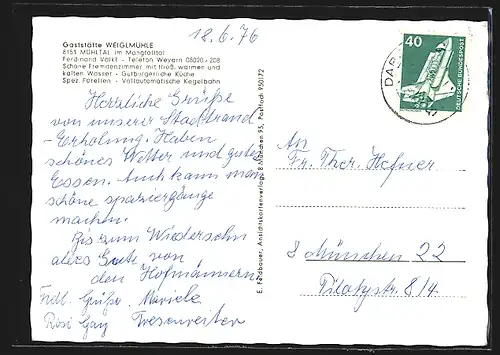 18.6.76
Gaststätte WEIGLMÜHLE
8151 MÜHLTAL im Mangfalltal
Ferdinand Valkt - Telefon Weyarn 08020 - 208
Schöne Fremdenzimmer mit fließ. warmen und
kalten Wasser - Gutbürgerliche Küche
Spez. Forellen - Vollautomatische Kegelbahn
Herzliche Grüße
von unserer Stadtrand
-Erholung. Haben
schönes Wetter und gutes
Essen. Auch kann man
schöne spaziergänge
machen.
Bis zum Wiedersehn
alles Gute von
den Hofmännern
Frdl. Grüße Mariele
Rosi Gay Tresenreiter
E. Feldbauer, Ansichtskartenverlag, 8 München 95, Postfach 950172
40
DEUTSCHE BUNDESPOST
DAR
An
Fr. Ther. Hefner
8 München 22
Pilotystr. 8/4.